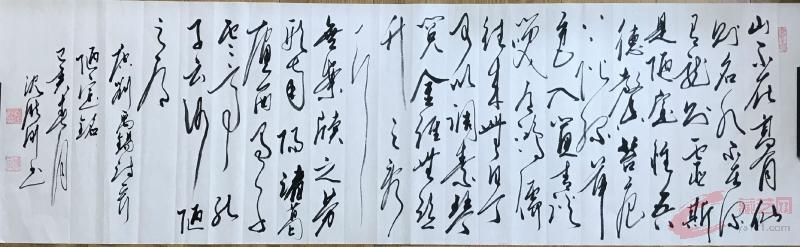 山不在高有仙
则名水不在深
有龙则灵斯
是陋室惟吾
德馨苔痕
上阶绿草
色入帘青谈
笑有鸿儒
往来无白丁
可以调素琴
阅金经无丝
竹之乱
耳
无案牍之劳
形南阳诸葛
庐西蜀子
云亭孔
子云何陋
之有
刘禹锡
陋室铭
己亥春月
书